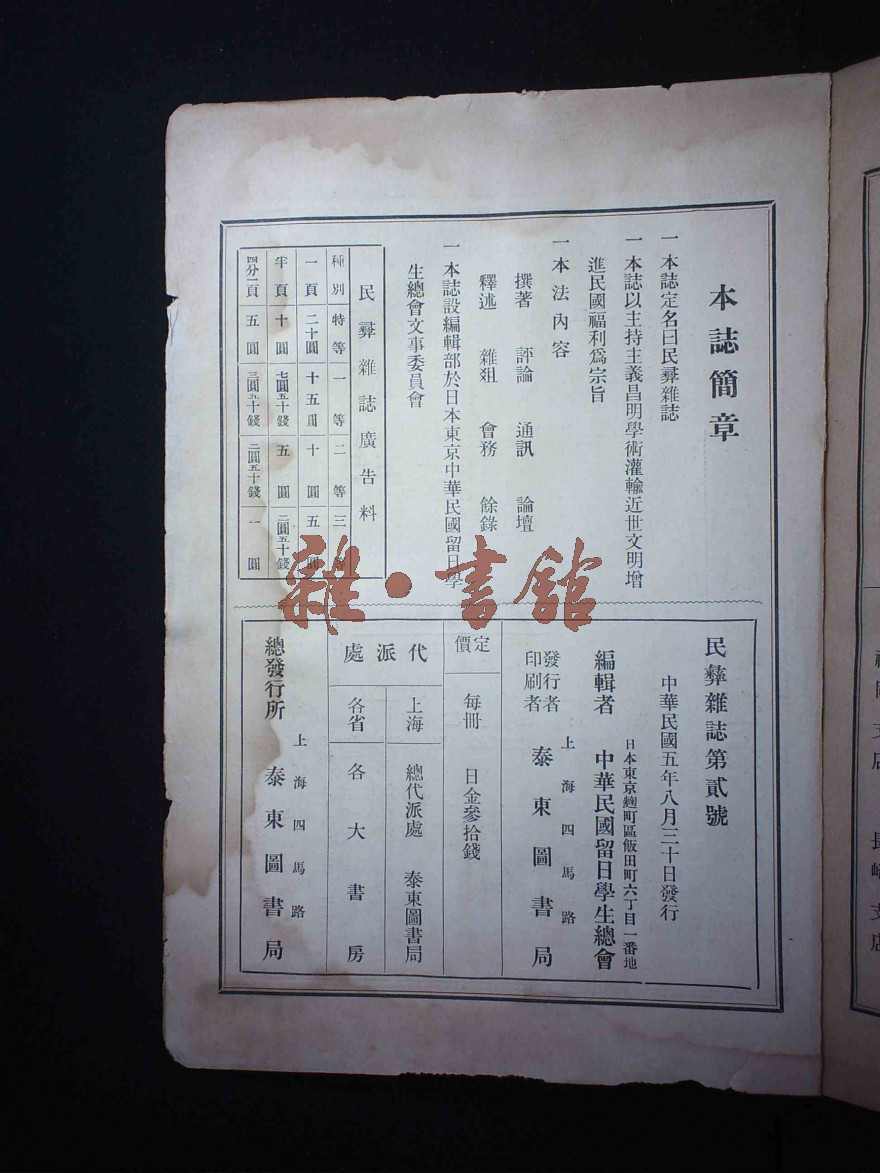 本誌簡章
一本誌定名曰民彛雜誌
一本誌以主持主義昌明學術灌輸近世文明增
進民國福利爲宗旨
一本法內容
撰著 評論 通訊 論壇
釋述 雜俎 會務 餘錄
一本誌設編輯部於日本東京中華民國留日學
生總會文事委員會
民彛雜誌廣告料
種別 特等 一等 二等 三等
一頁 二十圓 十五圓 十圓 五圓
半頁 十圓 七圓五十錢 五圓 二圓五十錢
四分一頁 五圓 三圓五十錢 二圓五十錢 一圓
雜·書館
民彝雜誌第貳號
中華民國五年八月三十日發行
日本東京麴町區飯田町六丁目一番地
編輯者 中華民國留日學生總會
上海四馬路
發行者
印刷者
泰東圖書局
定價 每冊 日金參拾錢
代派處
上海 總代派處 泰東圖書局
各省 各大書房
上海四馬路
總發行所 泰東圖書局
支店
長崎支店